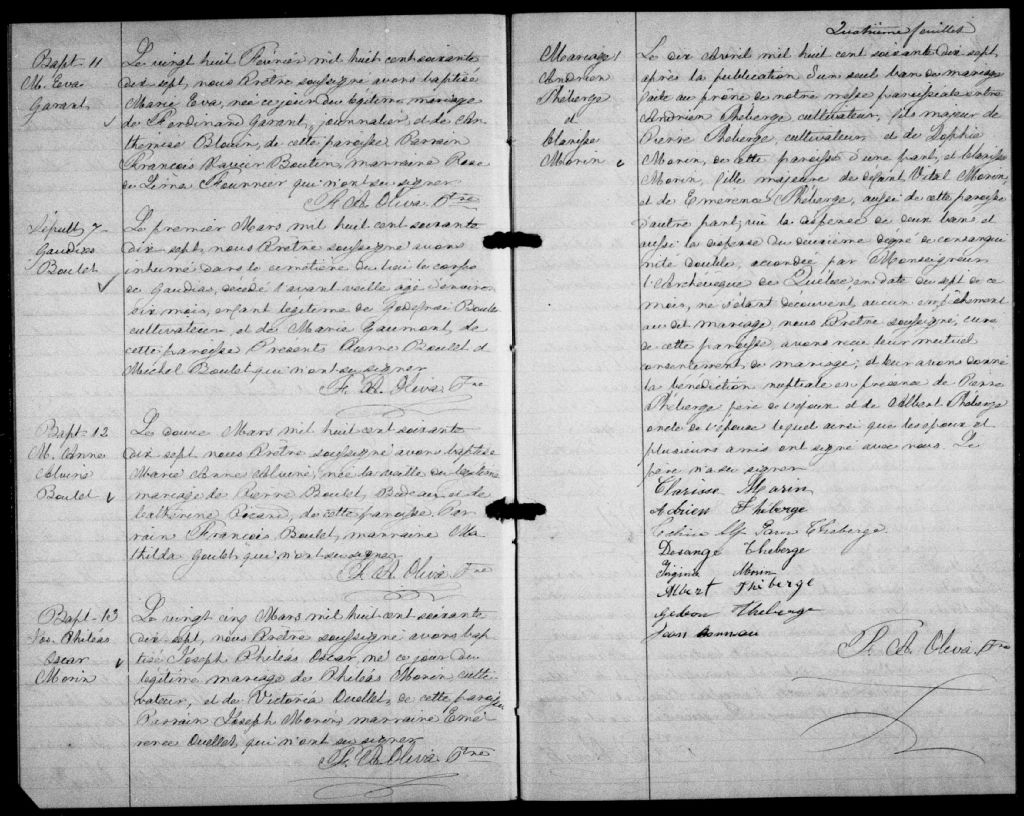 Bapt- 11
M. Eva
Garant
Le vingt huit Février mil huit cent soixante
dix sept, nous Prêtre soussigné avons baptisé
Marie Eva, née ce jour du légitime mariage
de Ferdinand Garant, journalier, et de
Blouin, de cette paroisse Parrain
François Xavier Boutin, marraine Rose
de Lima Fournier qui n'ont su signer
F. A. Oliva. Ptre
Sépult 7-
Gaudias
Boulet
Le premier Mars mil huit cent soixante
dix sept, nous Prêtre soussigné avons
inhumé dans le cimétière du lieu le corps
de Gaudias, décédé l'avant veille agé d'environ
six mois, enfant légitime de Godefroi Boulet
cultivateur et de Marie Gaumont, de
cette paroisse Présents Pierre Boulet et
Michel Boulet qui n'ont su signer
F. A. Oliva. Ptre
Bapt- 12
M. Anne
Alvine
Boulet
Le douze Mars mil huit cent soixante
dix sept nous Prêtre soussigné avons baptisé
Marie Anne Alvine, née la veille du légitime
mariage de Pierre Boulet, Bedeau et de
Catherine Picard, de cette paroisse Par
rain François Boulet, marraine Ma
thilda Goulet qui n'ont su signer
F. A. Oliva Ptre
Bapt- 13
Jos. Philéas
Oscar
Morin
Le vingt cinq Mars mil huit cent soixante
dix sept, nous Prêtre soussigné avons bap
tisé Joseph Philéas Oscar, né ce jour du
légitime mariage de Philéas Morin culti
vateur, et de Victoria Ouellet, de cette paroisse
Parrain Joseph Morin, marraine Emé
rence Ouellet, qui n'ont su signer
F. A. Oliva. Ptre
feuillet
Mariage 1
Andrien
Théberge
et
Clarisse
Morin
Le dix Avril mil huit cent soixante dix sept
après la publication d'un seul ban de mariage
faite au prône de notre messe paroissiale entre
Andrien Théberge cultivateur, fils majeur de
Pierre Théberge, cultivateur et de Sophie
Morin, de cette paroisse d'une part, et Clarisse
Morin, fille majeure de défunt Vital Morin,
et de Emerence Théberge, aussi de cette paroisse
d'autre part; vu la dispense de deux bans et
aussi la dispense du deuxième dégré de consangui
nité double, accordée par Monseigneur
l'Archevêque de Québec, en date du sept de ce
mois, ne s'étant découvert aucun empêchement
au dit mariage, nous Prêtre soussigné, curé
de cette paroisse, avons reçu leur mutuel
consentement de mariage, et leur avons donné
la bénédiction nuptiale en présence de Pierre
Théberge père de l'époux et de Albert Théberge
oncle de l'épouse lequel ainsi que les époux et
plusieurs amis ont signé avec nous. Le
père n'a su signer
Clarisse Morin
Adrien Théberge
Theberge
Desange Theberge
Virginie Morin
Albert Théberge
Gédéon Theberge
Jean
F. A. Oliva. Ptre